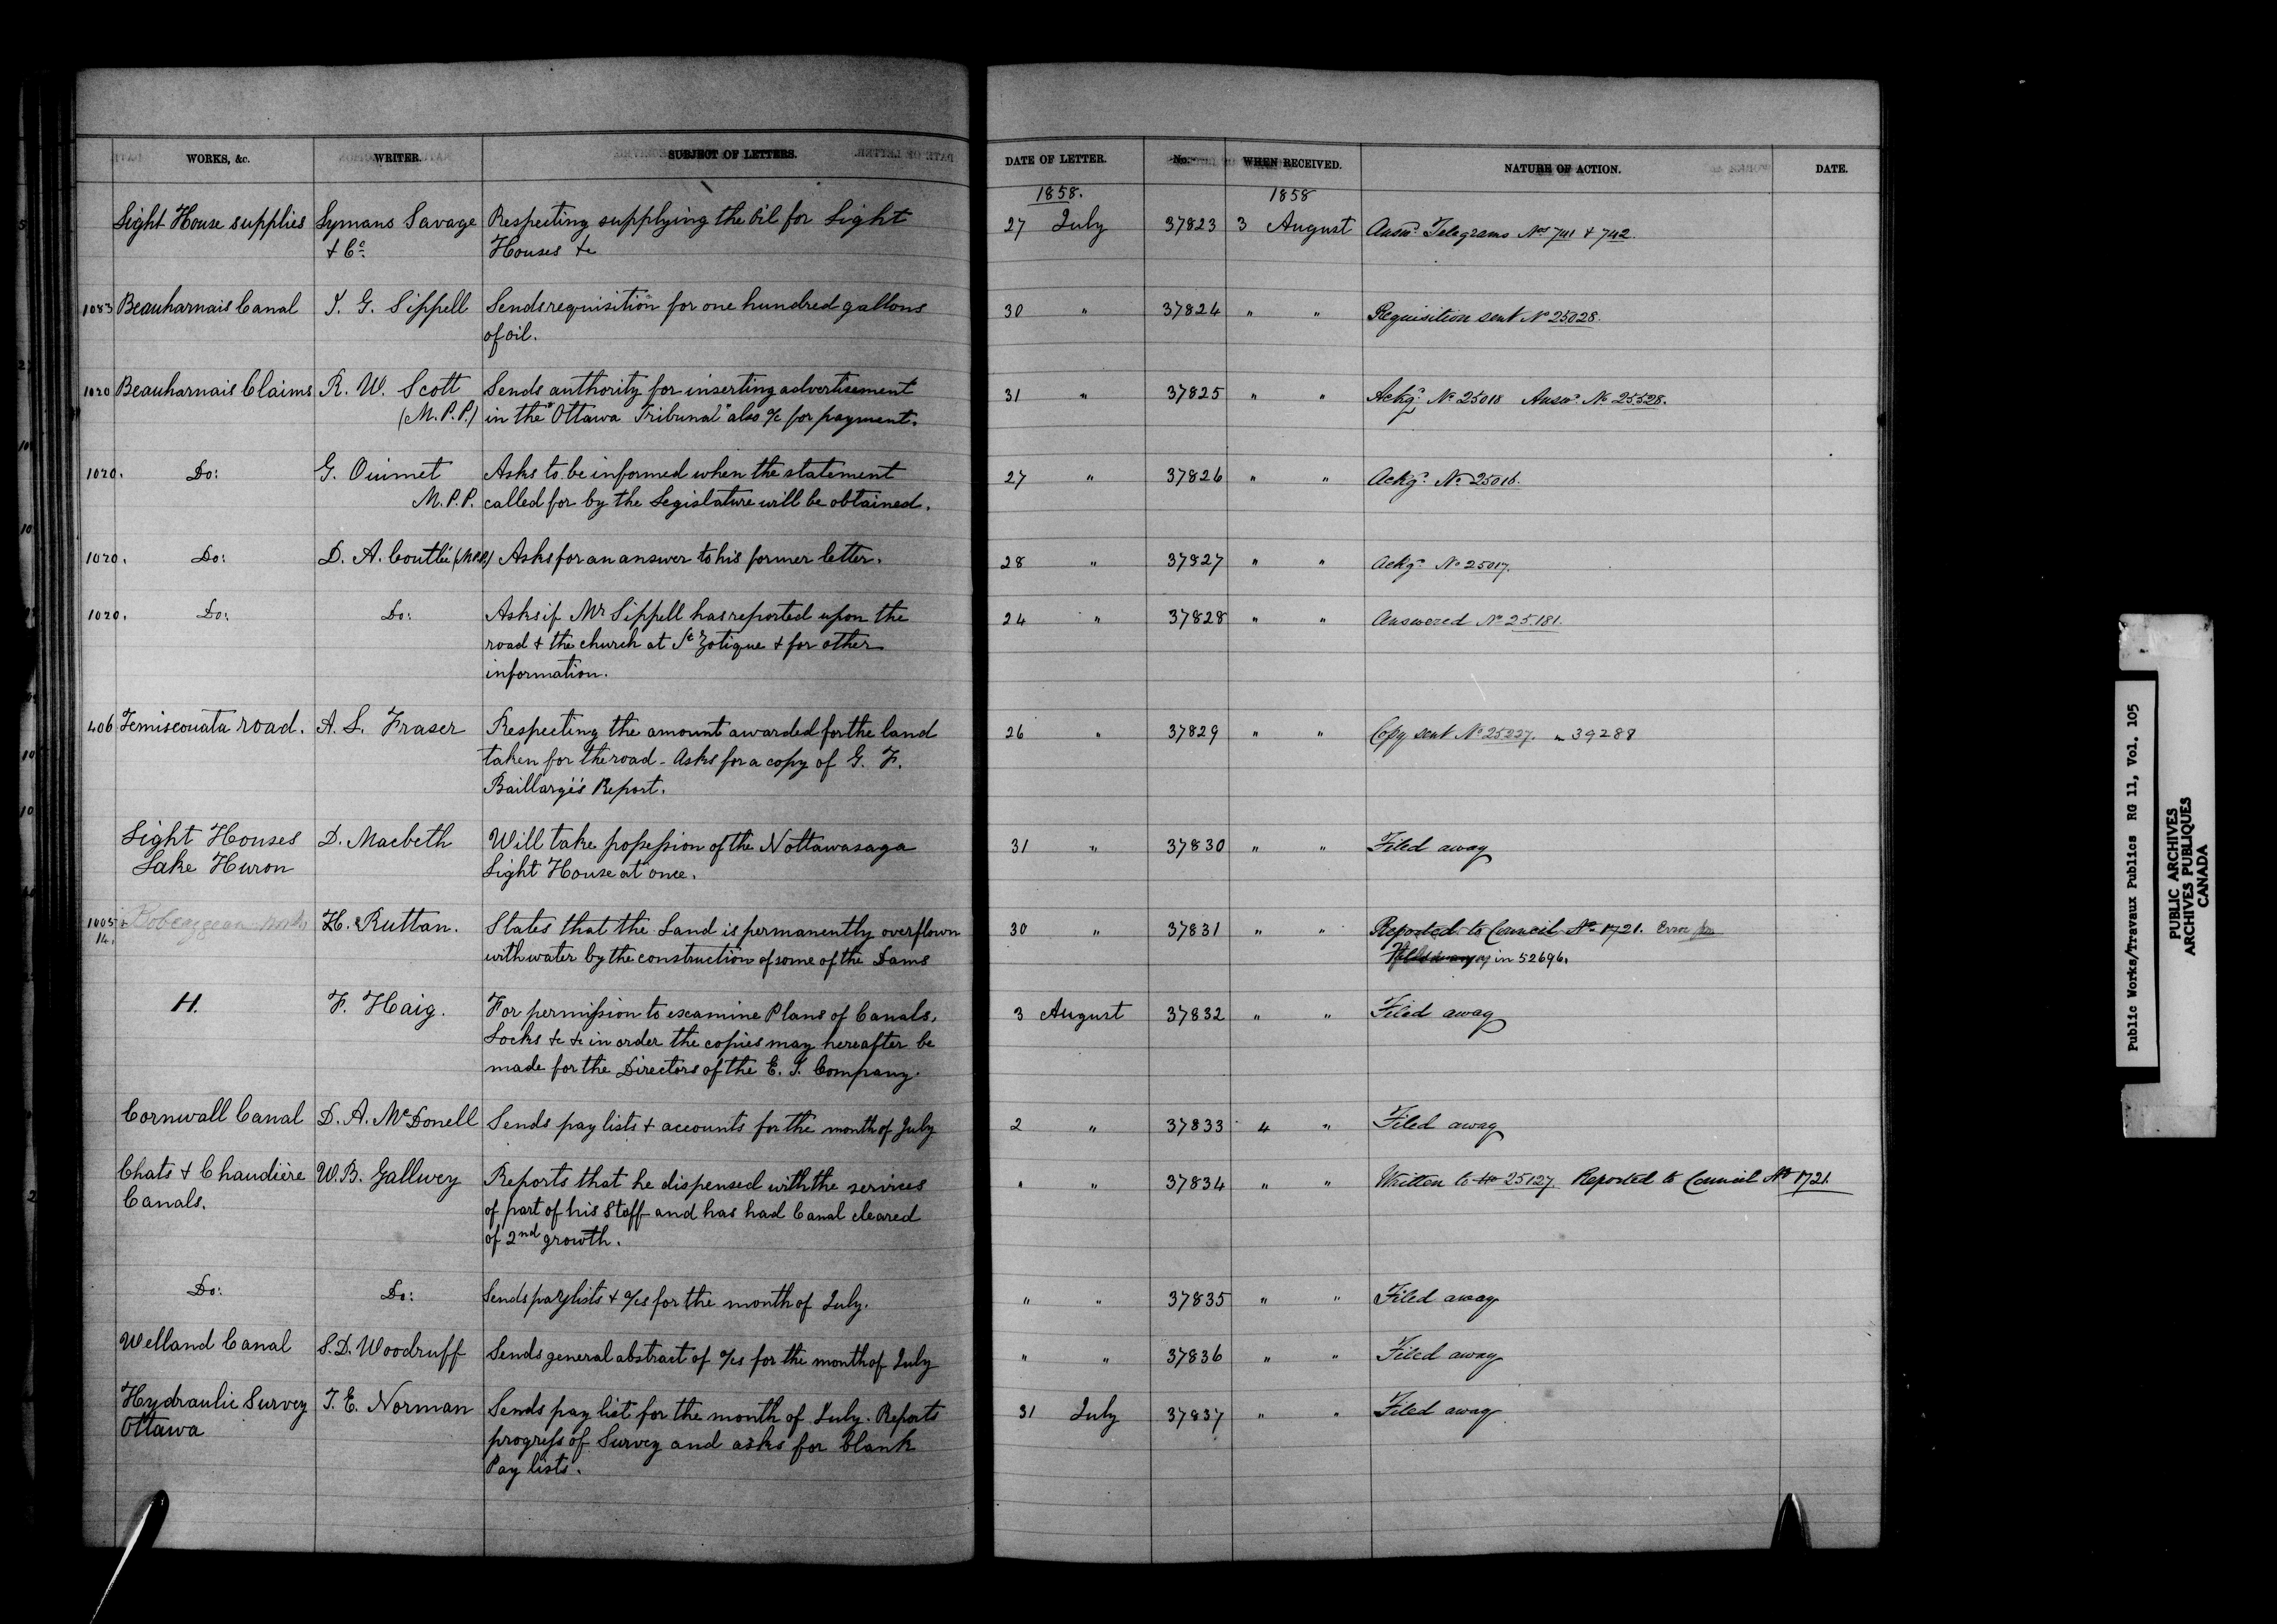 WORKS, &c. WRITER. SUBJECT OF LETTERS. DATE OF LETTER. No. WHEN RECEIVED. NATURE OF ACTION. DATE.
1858. 1858
Light House supplies Lymans Savage Respecting supplying the Oil for Light 27 July 37823 3 August Answd. Telegrams Nos 741 & 742.
& Co. Houses &c
1083 Beauharnais Canal J. G. Sippell Sends requisition for one hundred gallons 30 " 37824 " " Requisition sent No 25028.
of oil.
1020 Beauharnais Claims R. W. Scott Sends authority for inserting advertisement 31 " 37825 " " Ackgd. No 25018 Answd. No 25528.
(M.P.P.) in the "Ottawa Tribunal" also a/c for payment.
1020. Do: G. Ouimet Asks to be informed when the statement 27 " 37826 " " Ackgd. No 25016.
M.P.P. called for by the Legislature will be obtained.
1020. Do: D. A. Coutlée (M.P.P.) Asks for an answer to his former letter. 28 " 37827 " " Ackgd. No 25017.
1020. Do: Do: Asks if Mr Sippell has reported upon the 24 " 37828 " " Answered No 25.181.
road & the church at St Zotique & for other
information.
406 Temiscouata road. A. L. Fraser Respecting the amount awarded for the land 26 " 37829 " " Copy sent No 25227. " 39288
taken for the road - Asks for a copy of G. F.
Baillargé's Report.
Light Houses D. Macbeth Will take possession of the Nottawasaga 31 " 37830 " " Filed away
Lake Huron Light House at once.
1005 + Bobcaygeon Works H. Ruttan. States that the Land is permanently overflown 30 " 37831 " " Reported to Council No 1721. Error
14. with water by the construction of some of the Dams in 52696.
H. F. Haig. For permission to examine Plans of Canals, 3 August 37832 " " Filed away
Locks &c &c in order the copies may hereafter be
made for the Directors of the E. I. Company.
Cornwall Canal D. A. McDonell Sends pay lists & accounts for the month of July 2 " 37833 4 " Filed away
Chats & Chaudière W.B. Gallwey Reports that he dispensed with the services " " 37834 " " Written to No 25127. Reported to Council No 1721.
Canals. of part of his Staff and has had Canal cleared
of 2nd growth.
Do: Do: Sends paylists & a/cs for the month of July. " " 37835 " " Filed away
Welland Canal S.D. Woodruff Sends general abstract of a/cs for the month of July " " 37836 " " Filed away
Hydraulic Survey T. E. Norman Sends pay list for the month of July. Reports 31 July 37837 " " Filed away
Ottawa progress of Survey and asks for blank
Pay lists.
Public Works/Travaux Publics RG 11, Vol. 105
PUBLIC ARCHIVES
ARCHIVES PUBLIQUES
CANADA